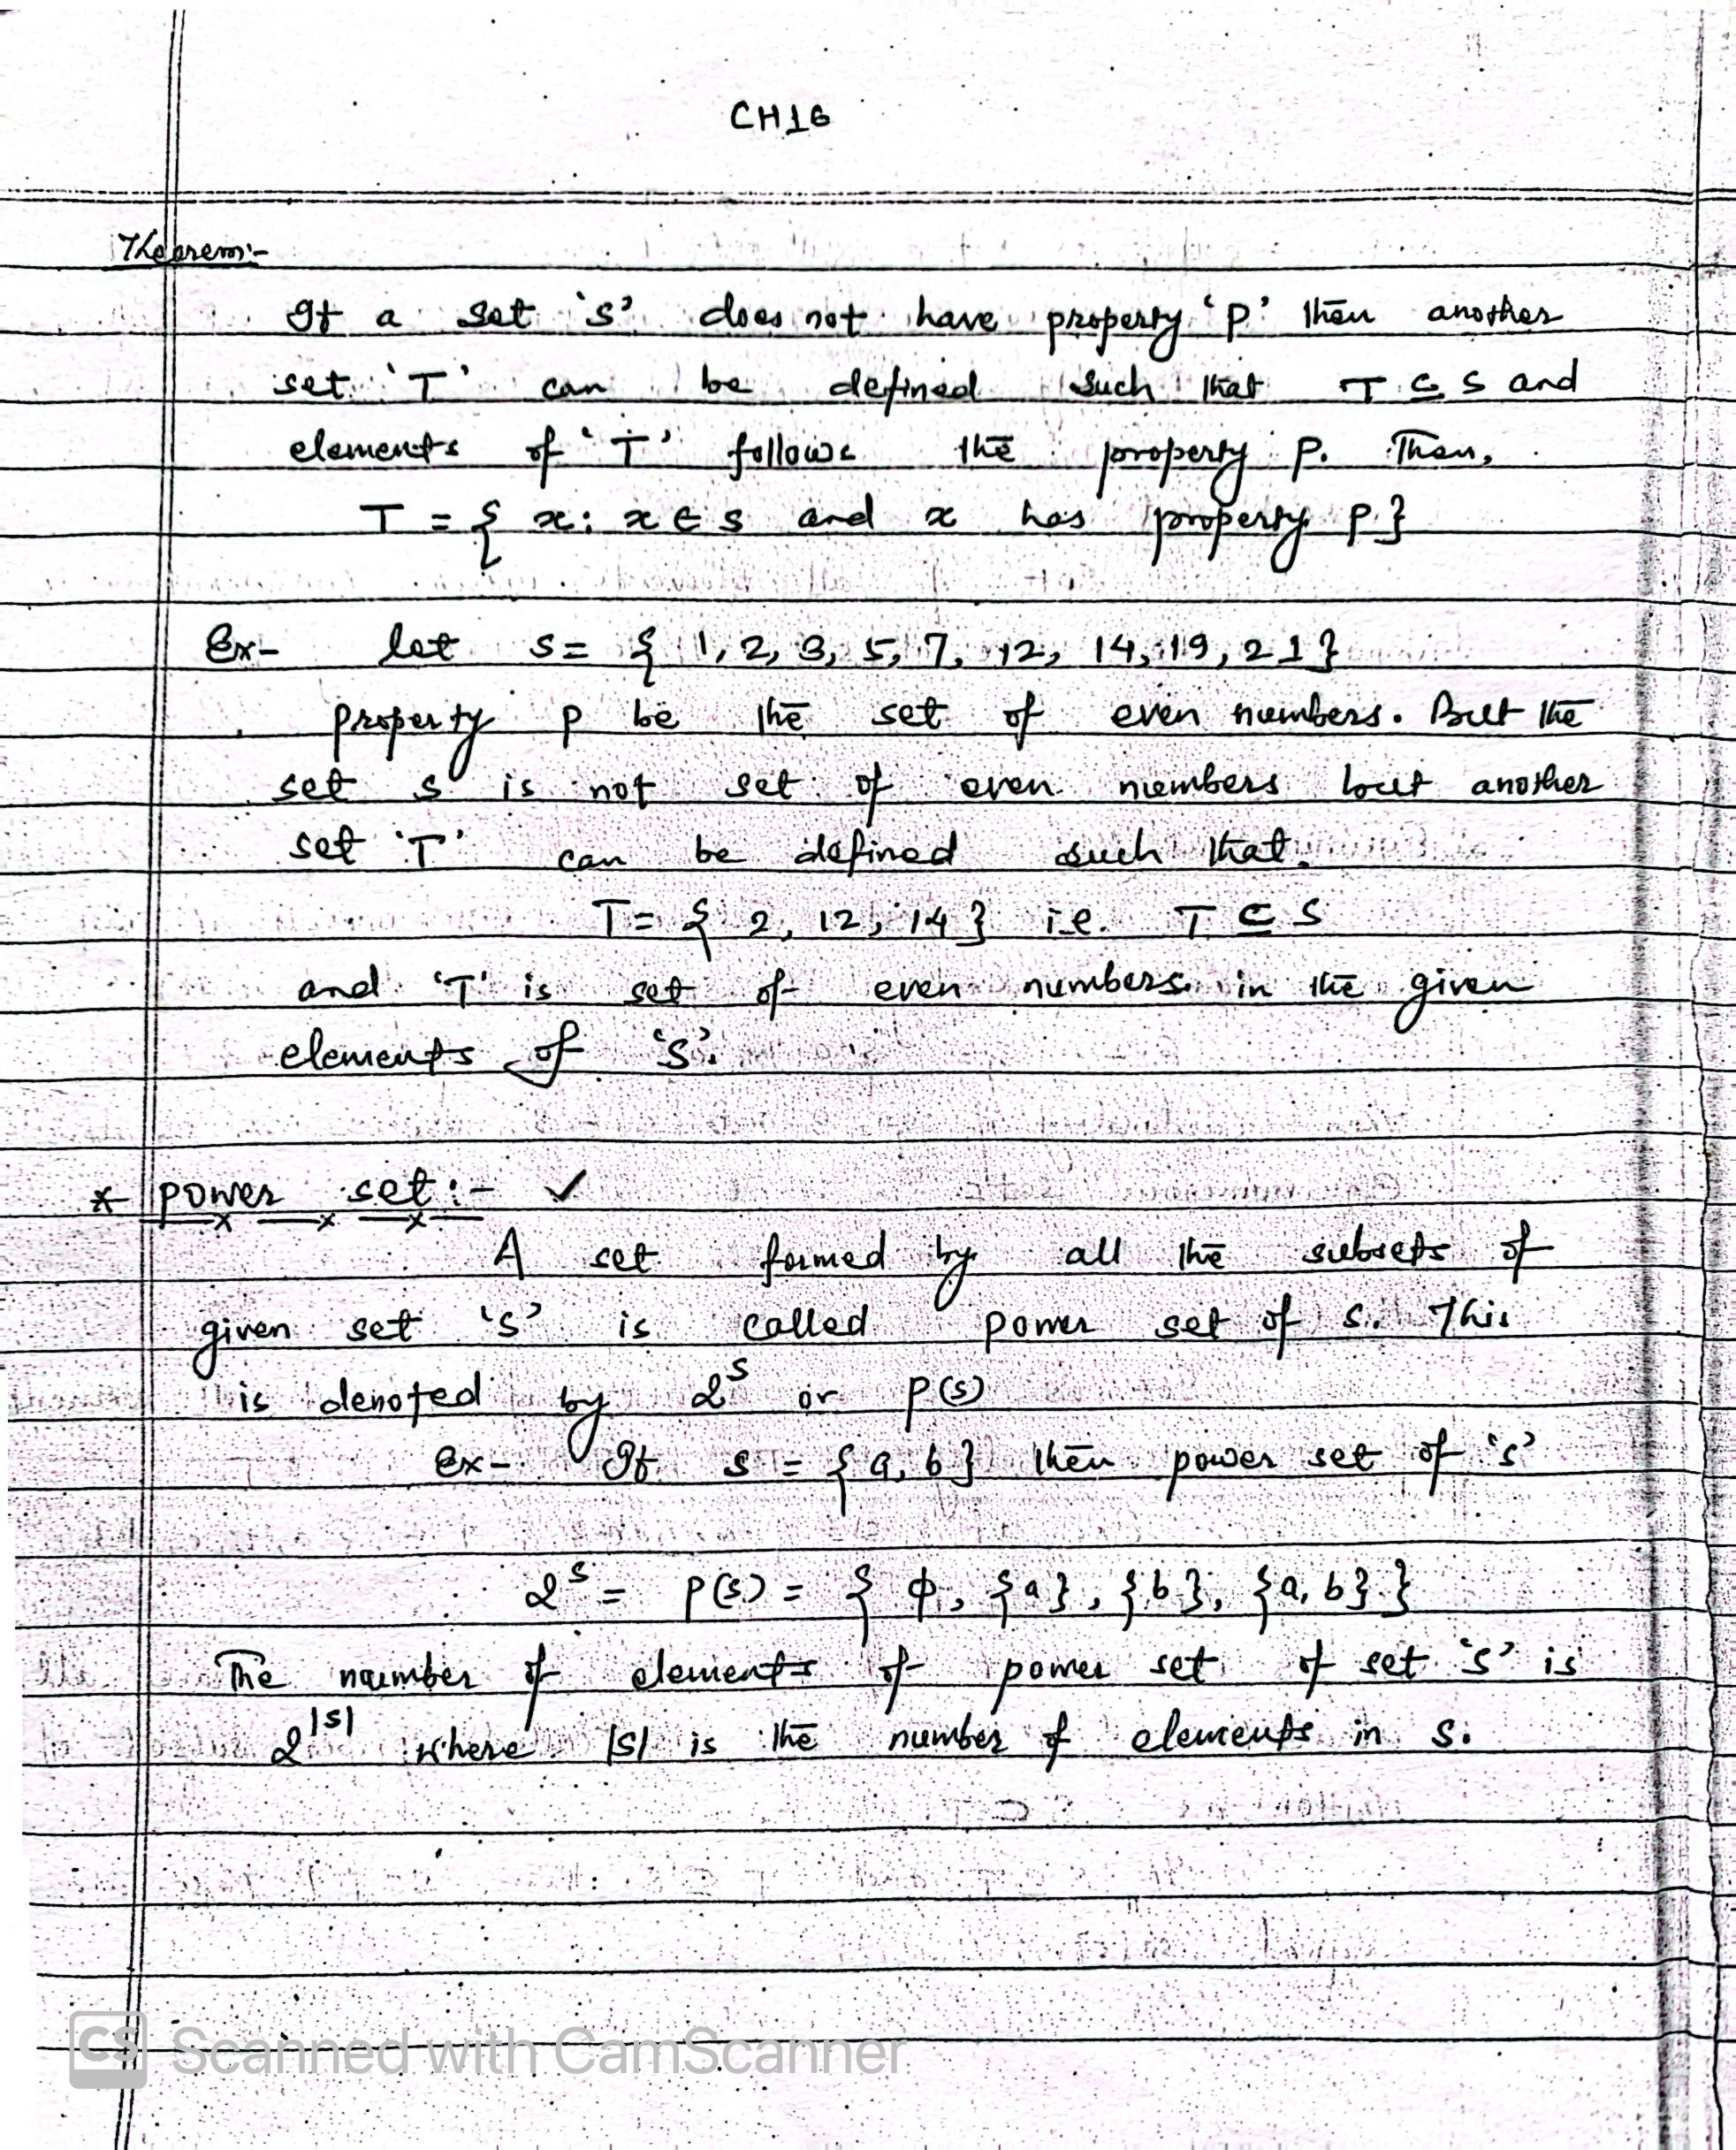 CH16
Theorem:-
If a set 'S' does not have property 'P' then another
set 'T' can be defined such that T ⊆ S and
elements of 'T' follows the property P. Then,
T = { x: x ∈ S and x has property P }
Ex- let S = { 1, 2, 3, 5, 7, 12, 14, 19, 21 }
property P be the set of even numbers. But the
set S is not set of even numbers but another
set 'T' can be defined such that.
T = { 2, 12, 14 } i.e. T ⊆ S
and 'T' is set of even numbers in the given
elements of 'S'.
* Power set :- ✓
A set formed by all the subsets of
given set 'S' is called power set of S. This
is denoted by 2^S or P(S)
Ex- If S = { a, b } then power set of 'S'
2^S = P(S) = { ϕ, {a}, {b}, {a, b} }
The number of elements of power set of set 'S' is
2^|S| where |S| is the number of elements in S.
CS Scanned with CamScanner